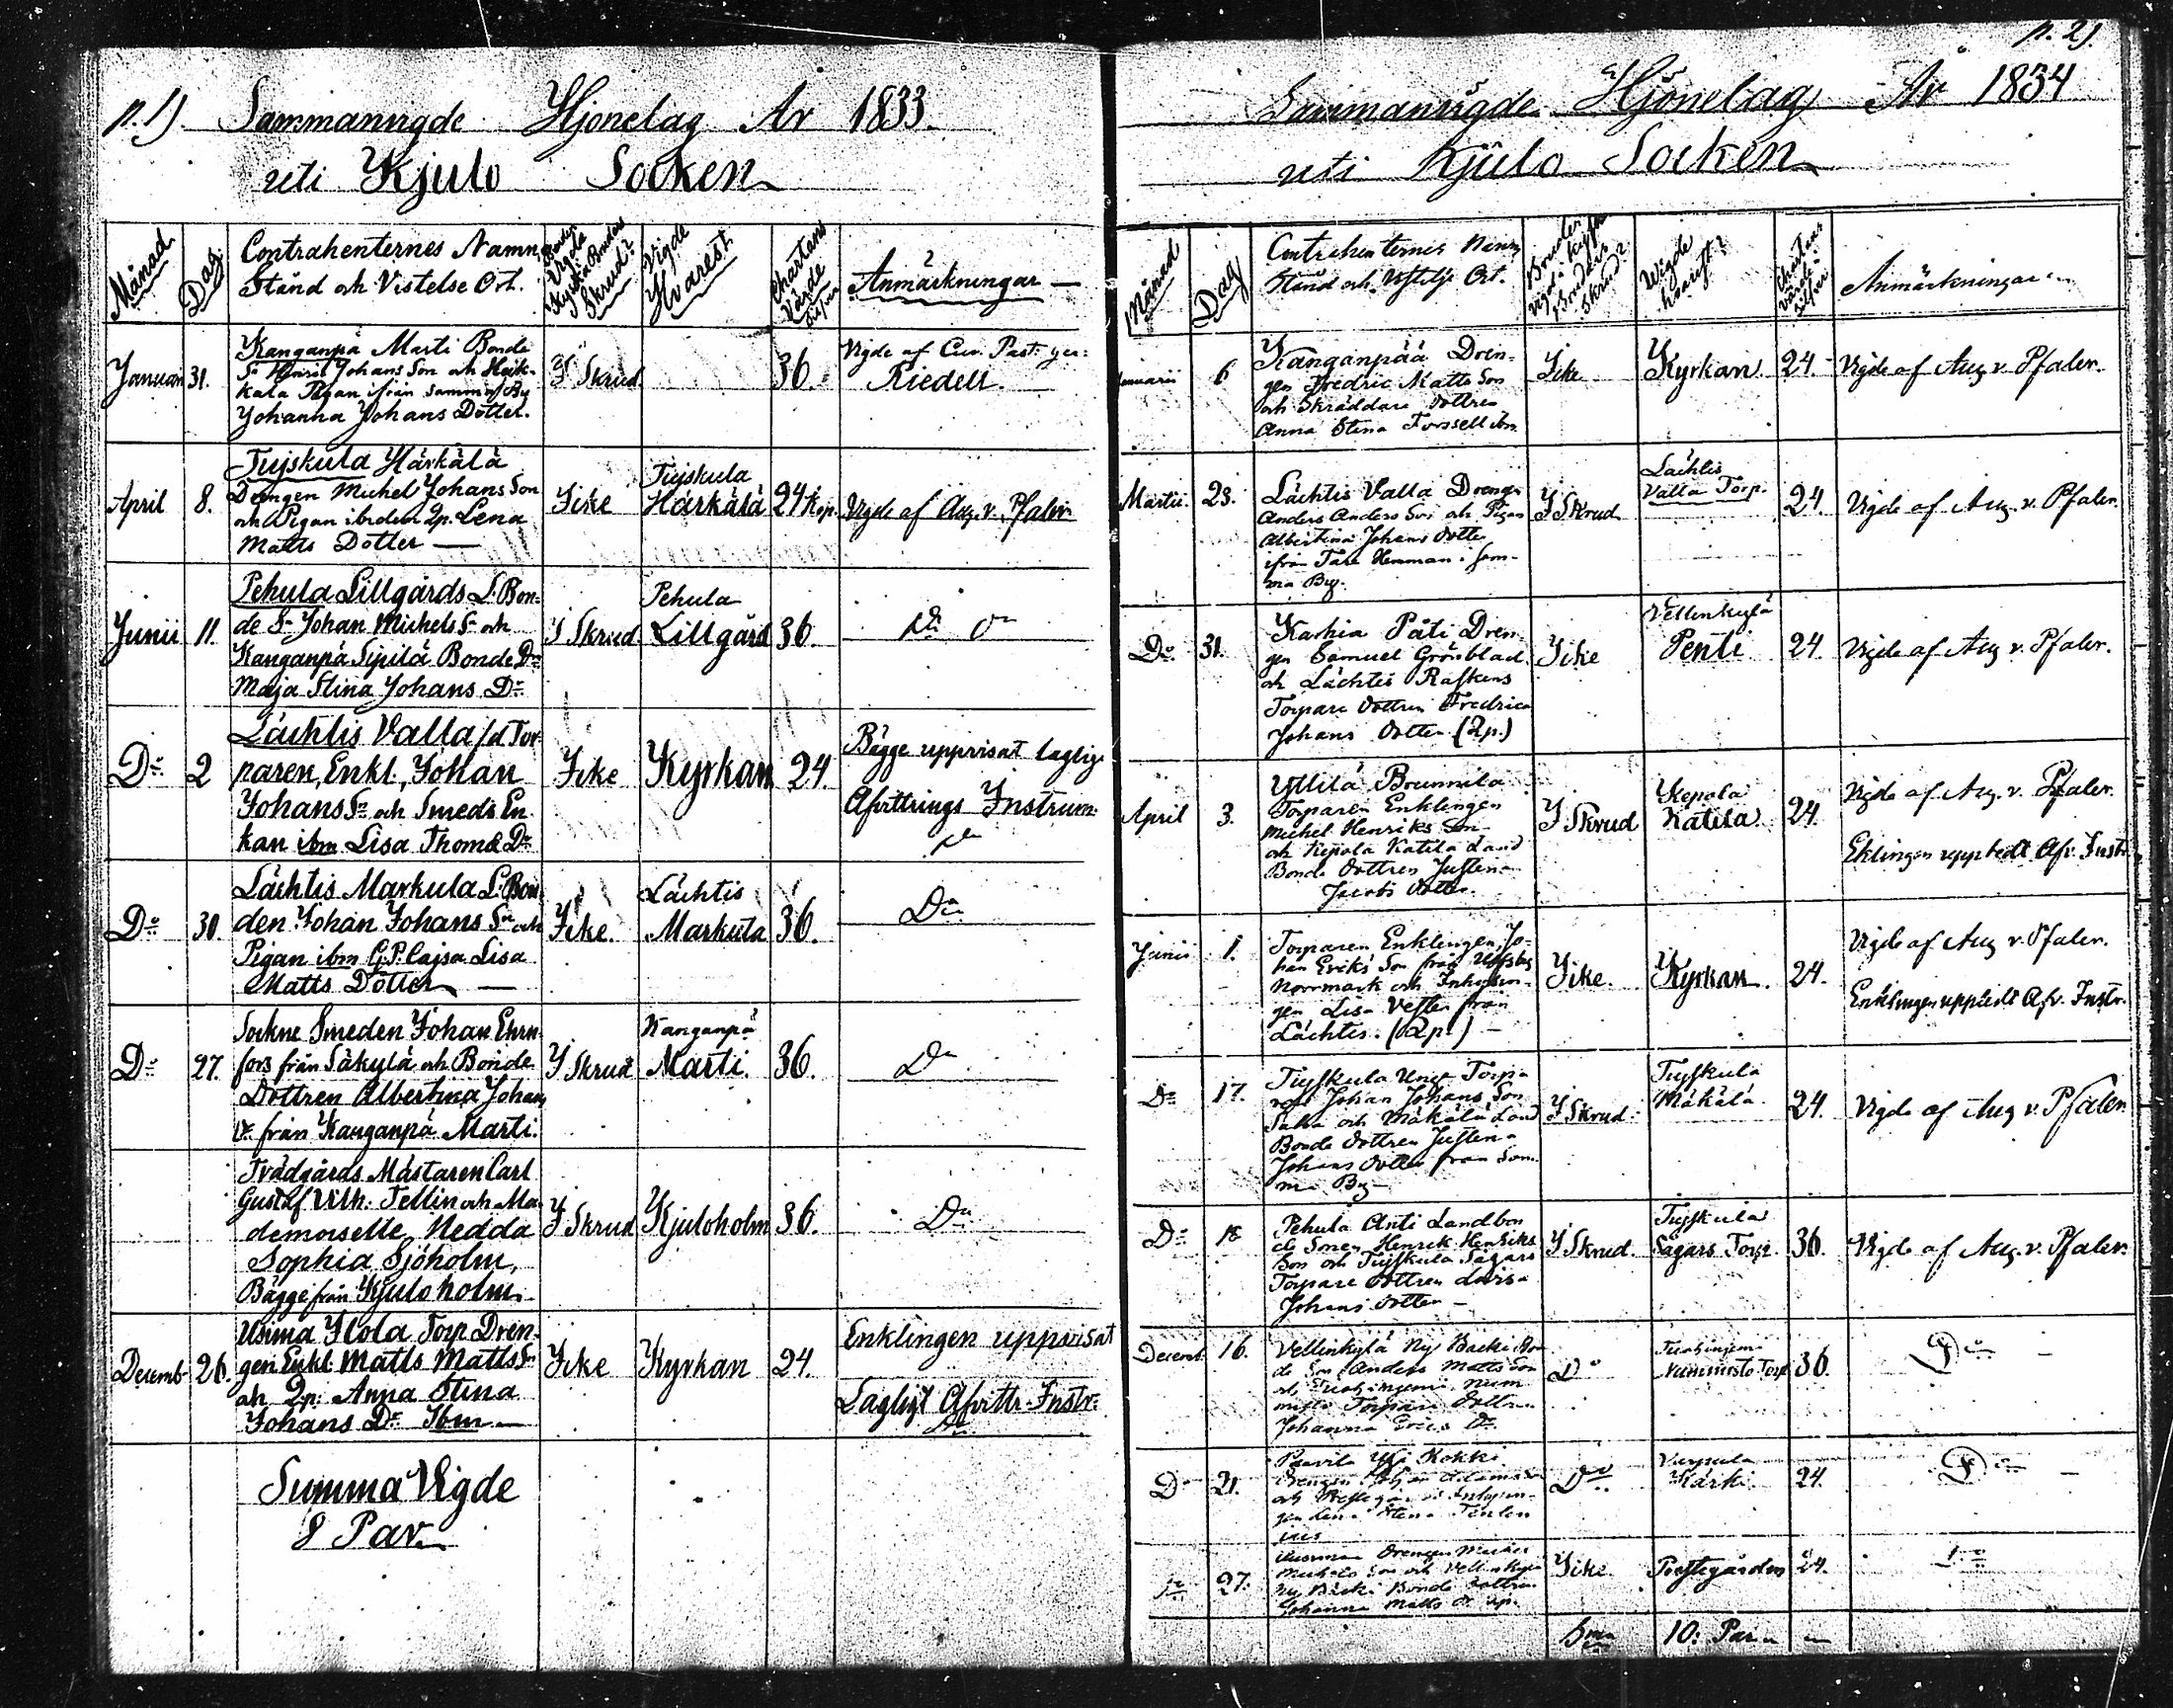 p. 1). Sammanvigde Hjonelag År 1833.
uti Kjulo Socken
Månad
Dag.
Contrahenternes Namn,
Stånd och Vistelse Ort.
Vigde
Skrud?
Vigde
Hvarest.
Chartens
Värde
Anmärkningar
Januari 31.
Kanganpä Marti Bonde
Sn Henric Johans Son och Heik-
kala Pigan ifrån samma By
Johanna Johans Dotter.
I Skrud
36.
Vigde af Cur. Past:
Riedell.
April 8.
Tujskula Härkälä
Drengen Michel Johans Son
och Pigan ibidem 2p. Lena
Matts Dotter
Icke
Tujskula
Härkälä
24 Kop.
Vigde af Aug. v. Pfaler
Junii 11.
Pehula Lillgårds L. Bon-
de Sn Johan Michels Sn och
Kanganpä Sipilä Bonde Dr
Maja Stina Johans Dr
I Skrud
Pehula
Lillgård
36.
Do
Do 2
Lächtis Valla fd Tor-
paren, Enkl., Johan
Johans Sn och Smeds En-
kan ibm Lisa Thomæ Dr
Icke
Kyrkan
24.
Bägge uppvisat laglige
Afvittrings Instrum.
Do 30.
Lächtis Markula L. Bon-
den Johan Johans Sn och
Pigan ibm G.P. Cajsa Lisa
Matts Dotter
Icke.
Lächtis
Markula
36.
Do
Do 27.
Sockne Smeden Johan Ehrn-
fors från Säkylä och Bonde
Dottren Albertina Johans
Dr från Kanganpä Marti.
I Skrud
Kanganpä
Marti.
36.
Do
Trädgårds Mästaren Carl
Gustaf Vilh. Tellin och Ma-
demoiselle Hedda
Sophia Sjöholm,
Bägge från Kjuloholm.
I Skrud
Kjuloholm
36.
Do
Decemb 26.
Unima Ilola Torp Dren-
gen Enkl. Matts Matts Sn
och 2p. Anna Stina
Johans Dr Ibm
Icke
Kyrkan
24.
Enklingen uppvisat
Lagligt Afvittr. Instr.
Do
Summa Vigde
8 Par
p. 2).
Sammanvigde Hjonelag År 1834
uti Kjulo Socken
Månad
Dag
Contrahenternes Namn,
Stånd och Vistelse Ort.
Wigde
Anmärkningar
Januarii 6
Kanganpää Dren-
gen Fredric Matts Son
och Skräddare Dottren
Anna Stina Forssell ibm
Icke
Kyrkan
24
Vigde af Aug. v. Pfaler.
Martii 23.
Lächtis Valla Drengen
Anders Anders Son och Pigan
Albertina Johans Dotter
ifrån Tare Hemman i sam-
ma By.
I Skrud
Lächtis
Valla Torp.
24.
Vigde af Aug. v. Pfaler.
Do 31.
Karhia Päti Dren-
gen Samuel Grönblad
och Lächtis Raskens
Torpare Dottren Fredrica
Johans Dotter (2p.)
Icke
Vellinkylä
Penti
24.
Vigde af Aug v. Pfaler.
April 3.
Yttilä Brunnila
Torparen Enklingen
Michel Henriks Son
och Kepola Katila Land
Bonde Dottren Justina
Jacobs Dotter.
I Skrud
Kepola
Katila
24.
Vigde af Aug. v. Pfaler.
Eklingen upptedt Afv. Instr.
Junii 1.
Torparen Enklingen Jo-
han Eriks Son från Ulfsby
Norrmark och Inhysin-
gen Lisa Vester från
Lächtis. (2p.)
Icke.
Kyrkan.
24.
Vigde af Aug v. Pfaler.
Enklingen uppteedt Afv. Instr.
Do 17.
Tujskula Torpa-
ren Johan Johans Son
och Mäkälä Land
Bonde Dottren Justina
Johans Dotter från Sam-
ma By
I Skrud.
Tujskula
Mäkälä.
24.
Vigde af Aug v. Pfaler.
Do 18
Pehula Anti Landbon-
de Sonen Henrik Henriks
Son och Tujskula Sagars
Torpare Dottren Lovisa
Johans Dotter
I Skrud.
Tujskula
Sagars Torp.
36.
Vigde af Aug. v. Pfaler.
Decemb 16.
Vellinkylä Ny Backi Bon-
de Son Anders Matts Son
och Num
misto Torpare Dottren
Johanna Erics Dr
Do
Nummisto Torp
36.
Do
Do 21.
Kokki
Drengen Johan Adams Sn
och
Do
Kärki
24.
Do
Do 27.
Drengen Michel
Michels Son och Vellinkylä
Ny Backi Bonde Dottren
Johanna Matts Dr 2p.
Icke
Prestegården
24.
Do
Sma 10: Par